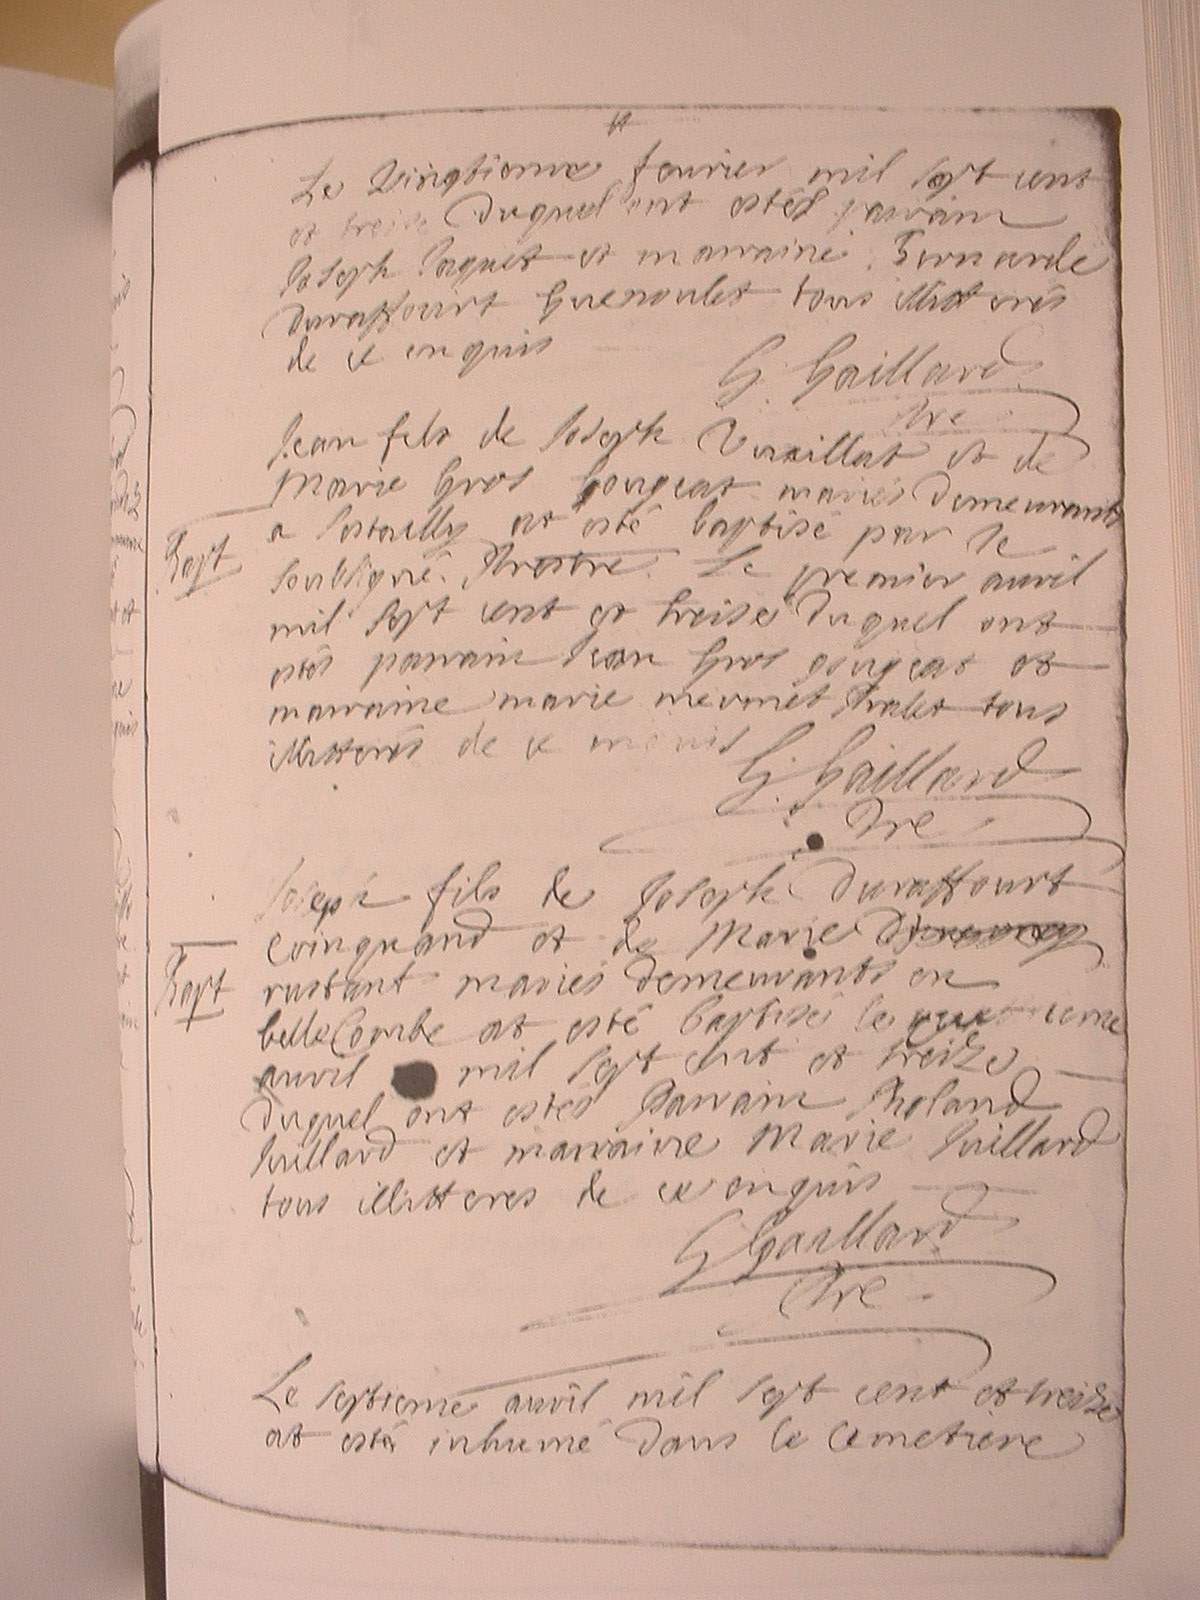 Le vingtieme feurier mil sept cent
et treise duquel ont estés parrain
Joseph paquet et marraine Bernarde
Duraffourt Guenoulet tous illitterés
de ce enquis
G. Gaillard
Pre
Jean fils de Joseph Vuaillat et de
Marie Gros Gougeat mariés demeurants
a at esté baptisé par le
Bapt
soubsigné Prestre Le premier auvil
mil sept cent et treise duquel ont
estés parrain Jean Gros gougeat et
marraine marie mermet tous
illitterés de ce enquis
G. Gaillard
Pre
Joseph fils de Joseph Duraffourt
Coinquand et de Marie
Bapt
rustant mariés demeurants en
belleCombe at esté baptisé le
auvil mil sept cent et treize
duquel ont estés Parrain Roland
Juillard et marraine Marie Juillard
tous illitteres de ce enquis
G Gaillard
Pre
Le septieme auvil mil sept cent et treize
at esté inhumé dans le Cemetiere